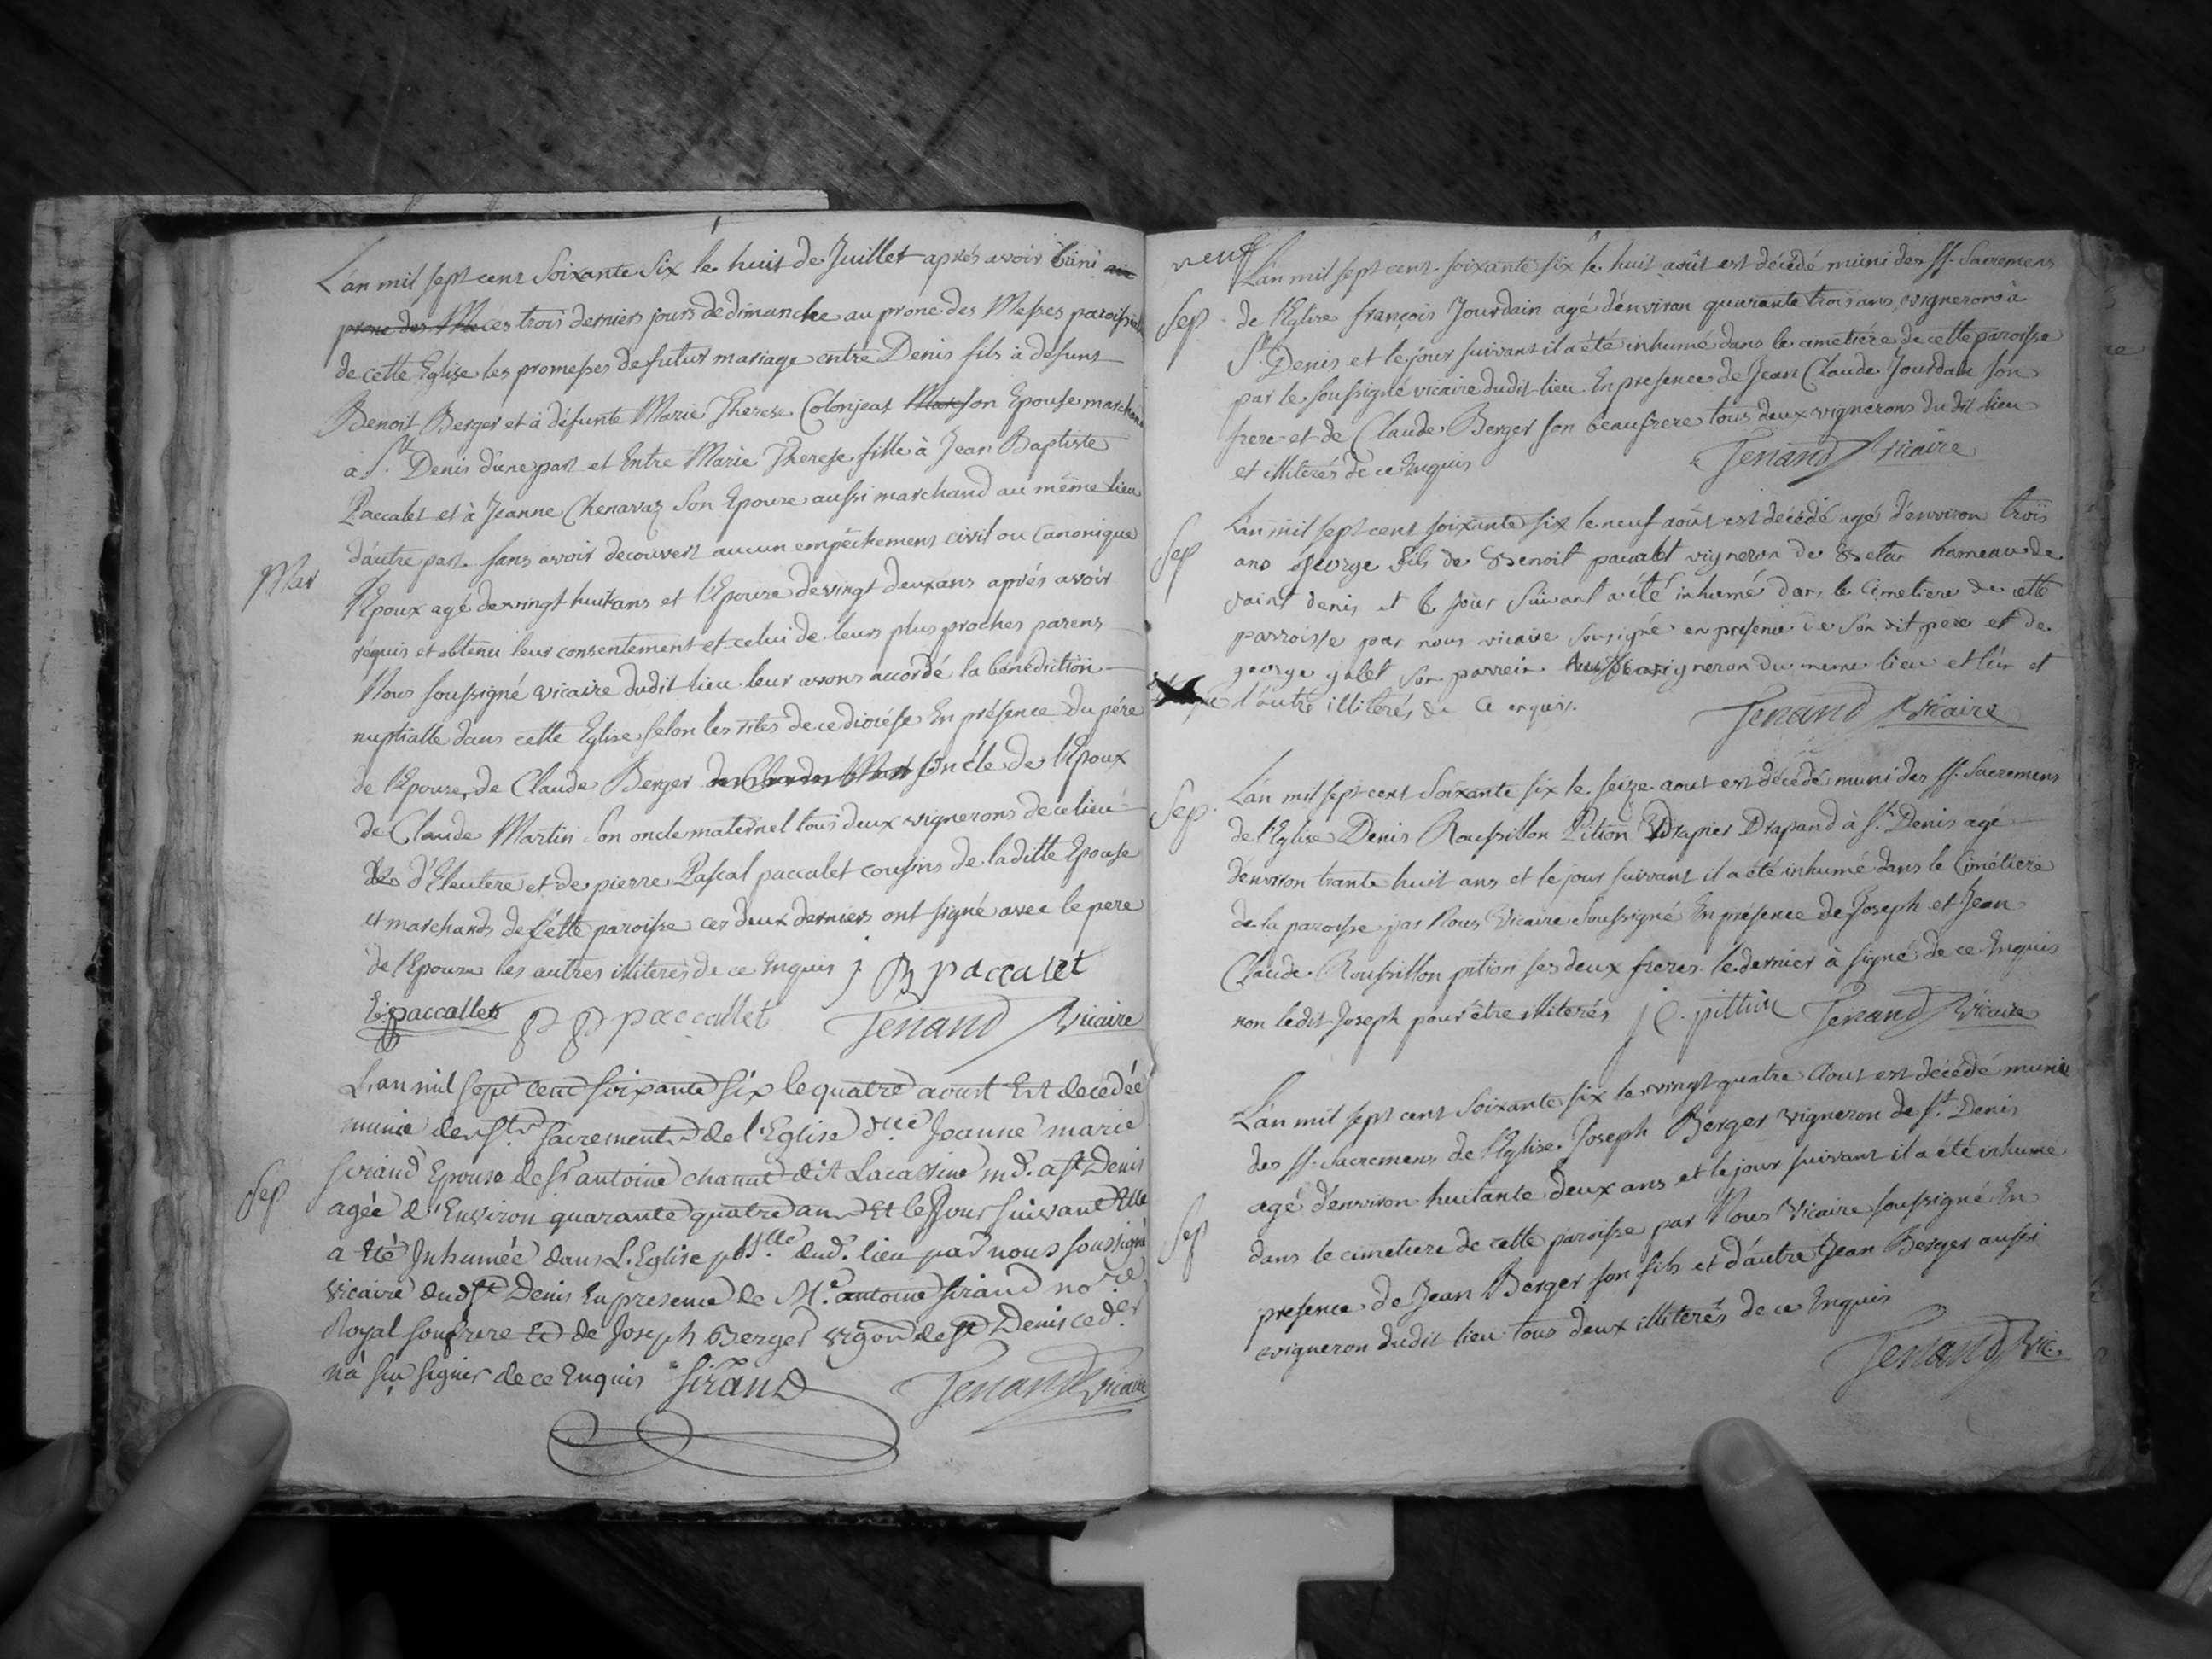 L'an mil sept cent soixante six le huit de Juillet aprés avoir
prone des ces trois derniers jours de dimanche au prone des Messes
de cette Eglise les promesses de futur mariage entre Denis fils à defunt
Benoit Berger et à défunte Marie Therese Colonjeat son Epouse
à St. Denis d'une part et Entre Marie Therese fille à Jean Baptiste
Paccalet et à Jeanne Chenavaz son Epouze aussi marchand au même lieu
Mar
d'autre part sans avoir decouvert aucun empêchement civil ou canonique
l'Epoux agé de vingt huit ans et l'Epouze de vingt deux ans aprés avoir
réquis et obtenu leur consentement et celui de leurs plus proches parens
Nous soussigné vicaire dudit lieu leur avons accordé la bénédiction
nuptialle dans cette Eglise selon les rites de ce diocése En présence du pére
de l'Epouze, de Claude Berger oncle de l'Epoux
de Claude Martin son oncle maternel tous deux vignerons de ce lieu
d'Eleutere et de pierre Pascal paccalet cousins de laditte Epouse
et marchands de cette paroisse ces deux derniers ont signé avec le pere
de l'Epouze les autres illiterés de ce Enquis j B paccalet
E: paccallet P P paccallet Tenand Vicaire
L'an mil sept cent soixante six le quatre aoust Est decédée
munie des sts. sacrements de l'Eglise dlle Jeanne marie
Sep
sirand Epouse de sr antoine chanut dit md. a st Denis
agée d'Environ quarante quatre ans Et le Jour suivant Elle
a Eté Inhumée dans L'Eglise dud. lieu par nous soussigné
vicaire dud st Denis En presence de Me. antoine sirand nore.
Royal son frere Et de Joseph Berger vigon de st Denis ced.er
n'a sçu signer de ce Enquis Sirand Tenand Vicaire
neuf
L'an mil sept cent soixante six le huit août est décédé muni des ss. Sacremens
Sep
de l'Eglise françois Jourdain agé d'environ quarante trois ans, vigneron à
St. Denis et le jour suivant il a été inhumé dans le cimetiére de cette paroisse
par le soussigné vicaire dudit lieu En presence de Jean Claude Jourdain son
frere et de Claude Berger son beaufrere tous deux vignerons du dit lieu
et illiterés de ce Enquis Tenand Vicaire
L'an mil sept cent soixante six le neuf août est décédé agé d'environ trois
Sep
ans george fils de Benoit paccalet vigneron de hameau de
saint denis et le jour suivant a été inhumé dans le cimetiere de cette
parroisse par nous vicaire sousigné en presence de son dit pere et de
george galet son parrein vigneron du meme lieu et l'un et
l'autre illiterés de ce enquis. Tenand Vicaire
L'an mil sept cent soixante six le seize aout est décédé muni des ss. Sacremens
Sep.
de l'Eglise Denis Roussillon Pition Drapier Drapand à St. Denis agé
d'environ trante huit ans et le jour suivant il a été inhumé dans le Cimétiére
de la paroisse par Nous Vicaire soussigné En présence de Joseph et Jean
Claude Roussillon pition ses deux freres le dernier à signé de ce Enquis
non ledit Joseph pour être illiterés j C. pittion Tenand Vicaire
L'an mil sept cent soixante six le vingt quatre Aout est décédé munie
des ss. Sacremens de l'Eglise Joseph Berger vigneron de St. Denis
agé d'environ huitante deux ans et le jour suivant il a été inhumé
Sep
dans le cimetiere de cette paroisse par Nous Vicaire soussigné En
presence de Jean Berger son fils et d'autre Jean Berger aussi
vigneron dudit lieu tous deux illiterés de ce Enquis
Tenand Vic.